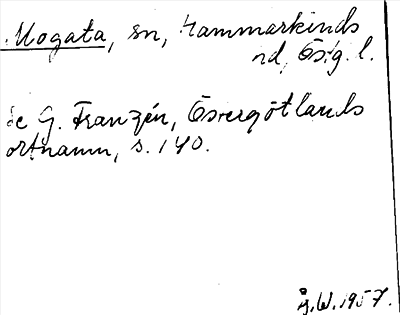 Mogata, sn, Hammarkinds
hd, Östg. l.
Se G. Franzén, Östergötlands
ortnamn, s. 140.
Å.W. 1957.